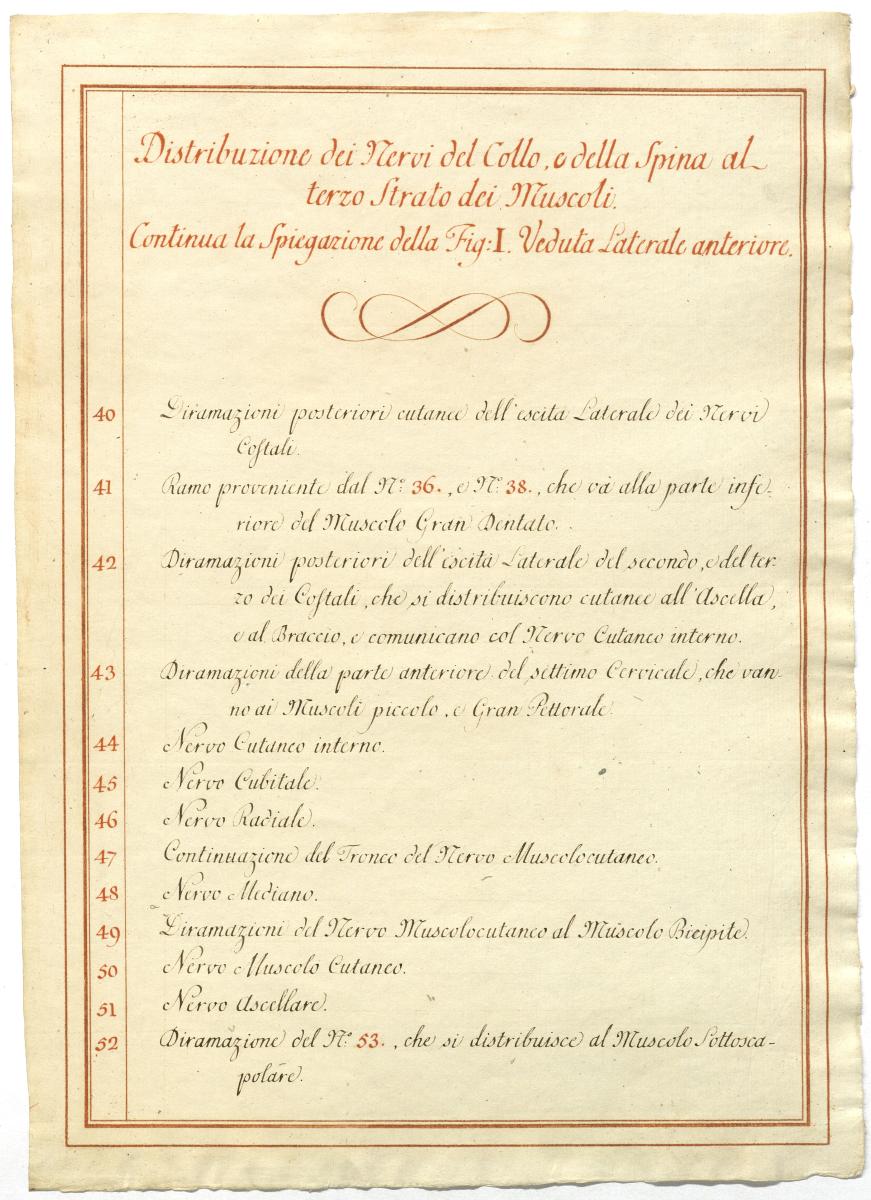 Distribuzione dei Nervi del Collo, e della Spina al
terzo Strato dei Muscoli.
Continua la Spiegazione della Fig: I. Veduta Laterale anteriore.
40 Diramazioni posteriori cutanee dell'escita Laterale dei Nervi
Coſtali.
41 Ramo proveniente dal N.º 36., e N.º 38., che và alla parte infe-
riore del Muscolo Gran Dentato.
42 Diramazioni posteriori dell'escita Laterale del secondo, e del ter-
zo dei Coſtali, che si distribuiscono cutanee all'Ascella,
e al Braccio, e comunicano col Nervo Cutaneo interno.
43 Diramazioni della parte anteriore del settimo Cervicale, che van-
no ai Muscoli piccolo, e Gran Pettorale.
44 Nervo Cutaneo interno.
45 Nervo Cubitale.
46 Nervo Radiale.
47 Continuazione del Tronco del Nervo Muscolocutaneo.
48 Nervo Mediano.
49 Diramazioni del Nervo Muscolocutaneo al Muscolo Bicipite.
50 Nervo Muscolo Cutaneo.
51 Nervo Ascellare.
52 Diramazione del N.º 53., che si distribuisce al Muscolo Sottosca-
polare.